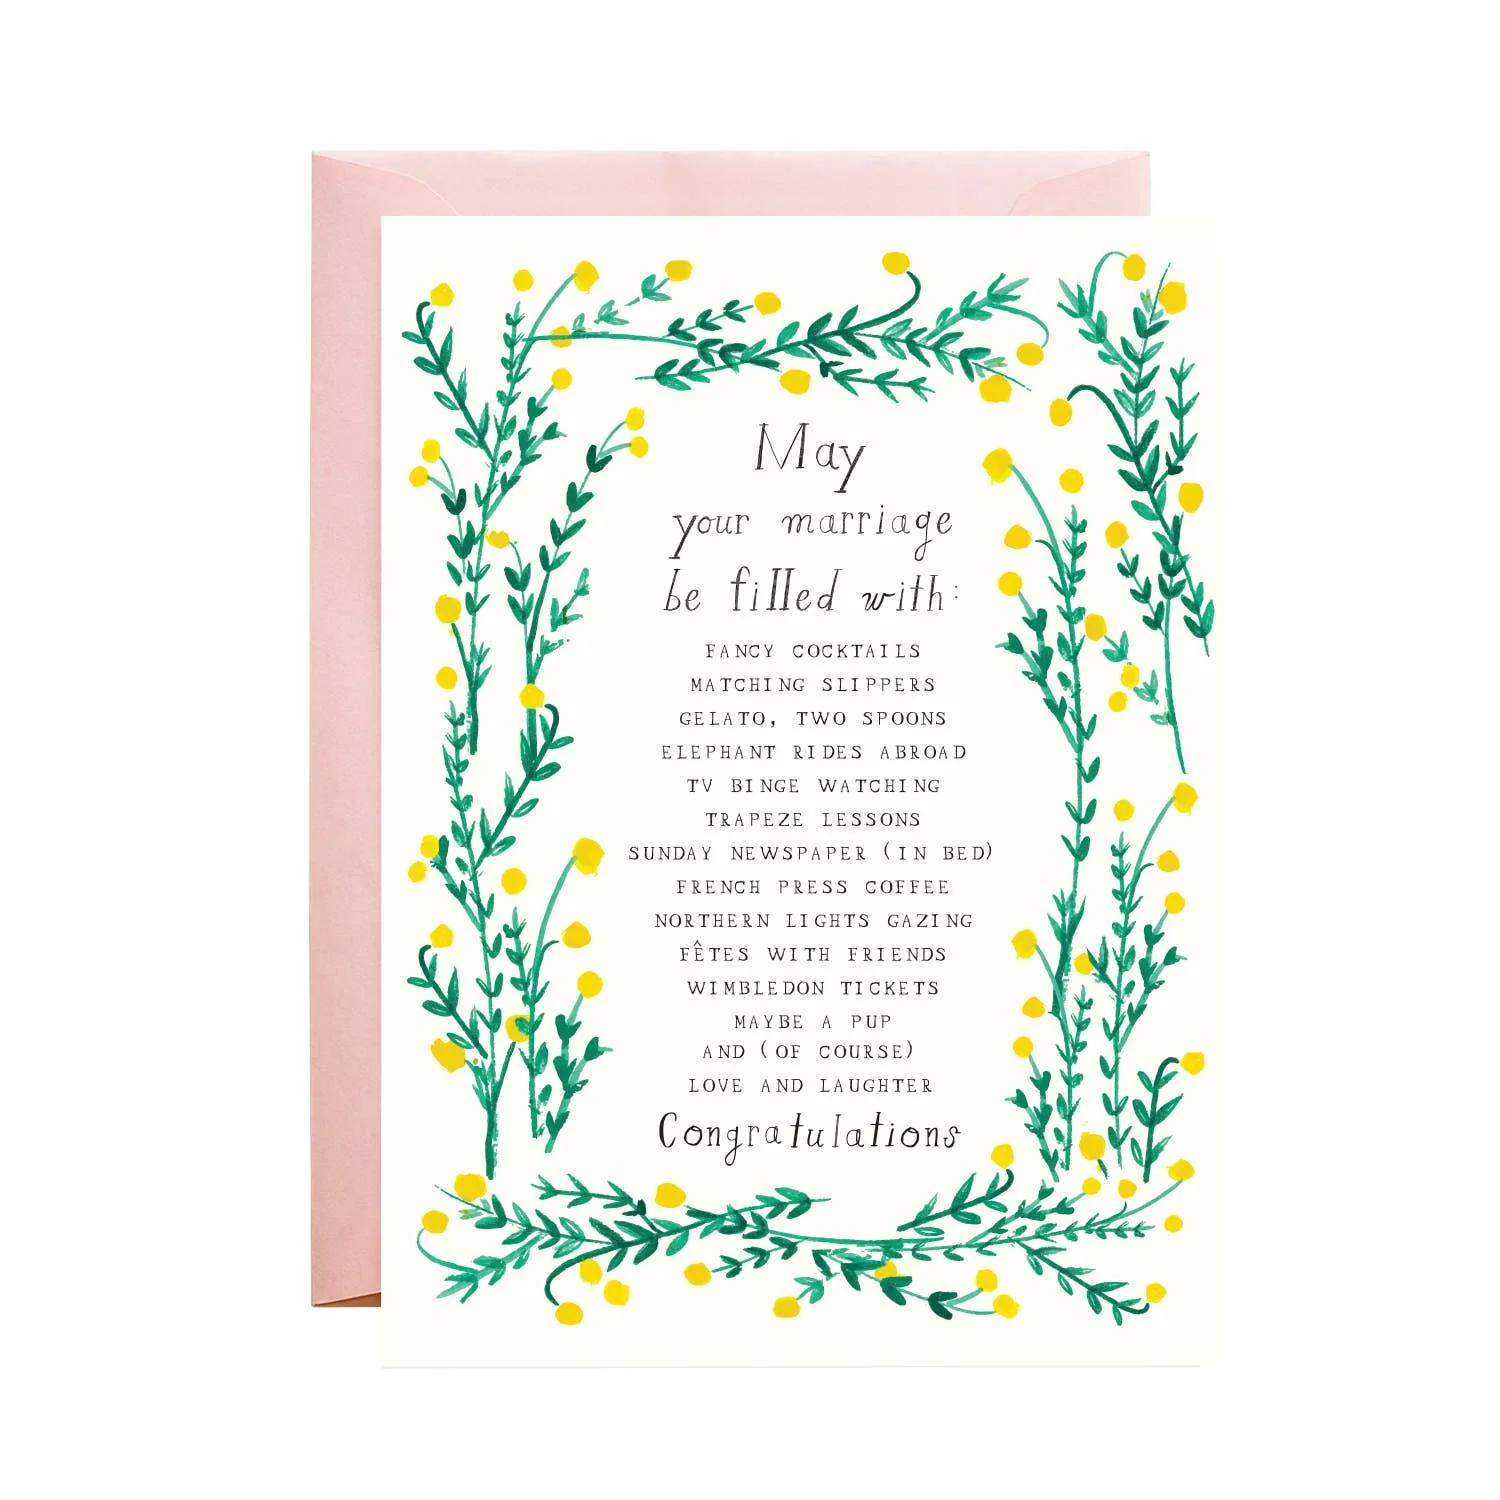 May
your marriage
be filled with:
FANCY COCKTAILS
MATCHING SLIPPERS
GELATO, TWO SPOONS
ELEPHANT RIDES ABROAD
TV BINGE WATCHING
TRAPEZE LESSONS
SUNDAY NEWSPAPER (IN BED)
FRENCH PRESS COFFEE
NORTHERN LIGHTS GAZING
FÊTES WITH FRIENDS
WIMBLEDON TICKETS
MAYBE A PUP
AND (OF COURSE)
LOVE AND LAUGHTER
Congratulations